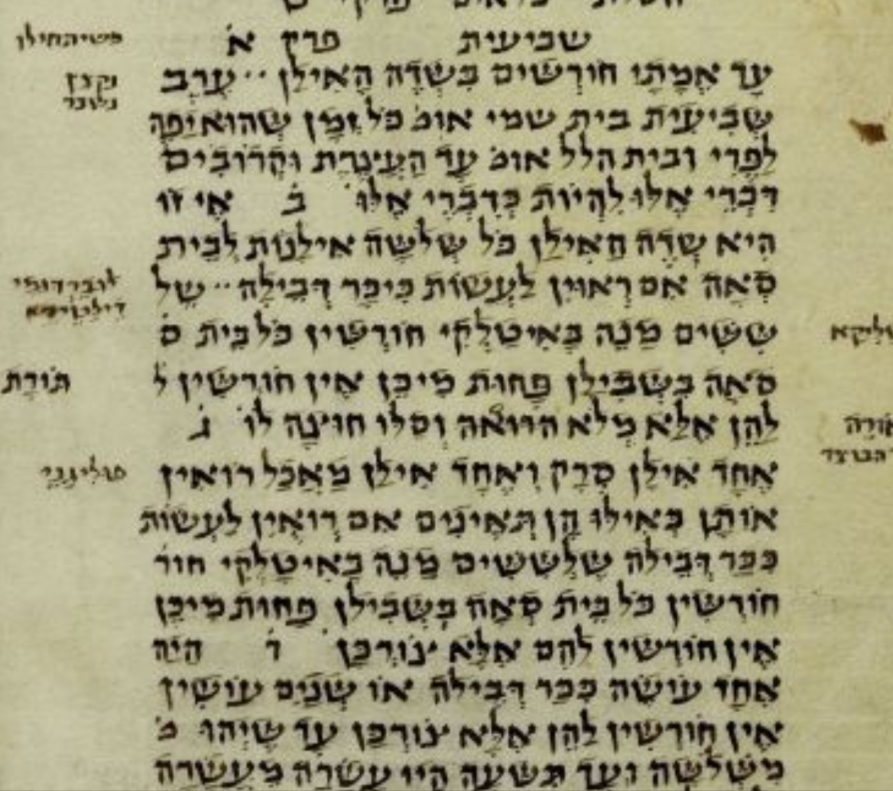 שביעית פרק א
עד אֵמָתַי חורשים בשדה האילן ערב
שביעית בית שמי אומ׳ כל זמן שהוא יפה
לפרי ובית הלל אומ׳ עד העצרת וקרובים
דברי אלו להיות כדברי אלו ב אי זו
היא שדה האילן כל שלשה אילנות לבית
סאה אם ראוין לעשות כיכר דבילה של
ששים מנה באיטלקי חורשין כל בית ס
סאה בשבילן פחות מיכן אין חורשין ל
להן אלא מלא האורה וסלו חוצה לו ג
אחד אילן סרק ואחד אילן מאכל רואין
אותן כאילו הן תאינים אם רואין לעשות
ככר דבילה שלששים מנה באיטלקי חור
חורשין כל בית סאה בשבילן פחות מיכן
אין חורשין להם אלא צורכן ד היה
אחד עושה ככר דבילה או שנים עושין
אין חורשין להן אלא צורכן עד שיהו מ
משלשה ועד תשעה היו עשרה מעשרה
תורת